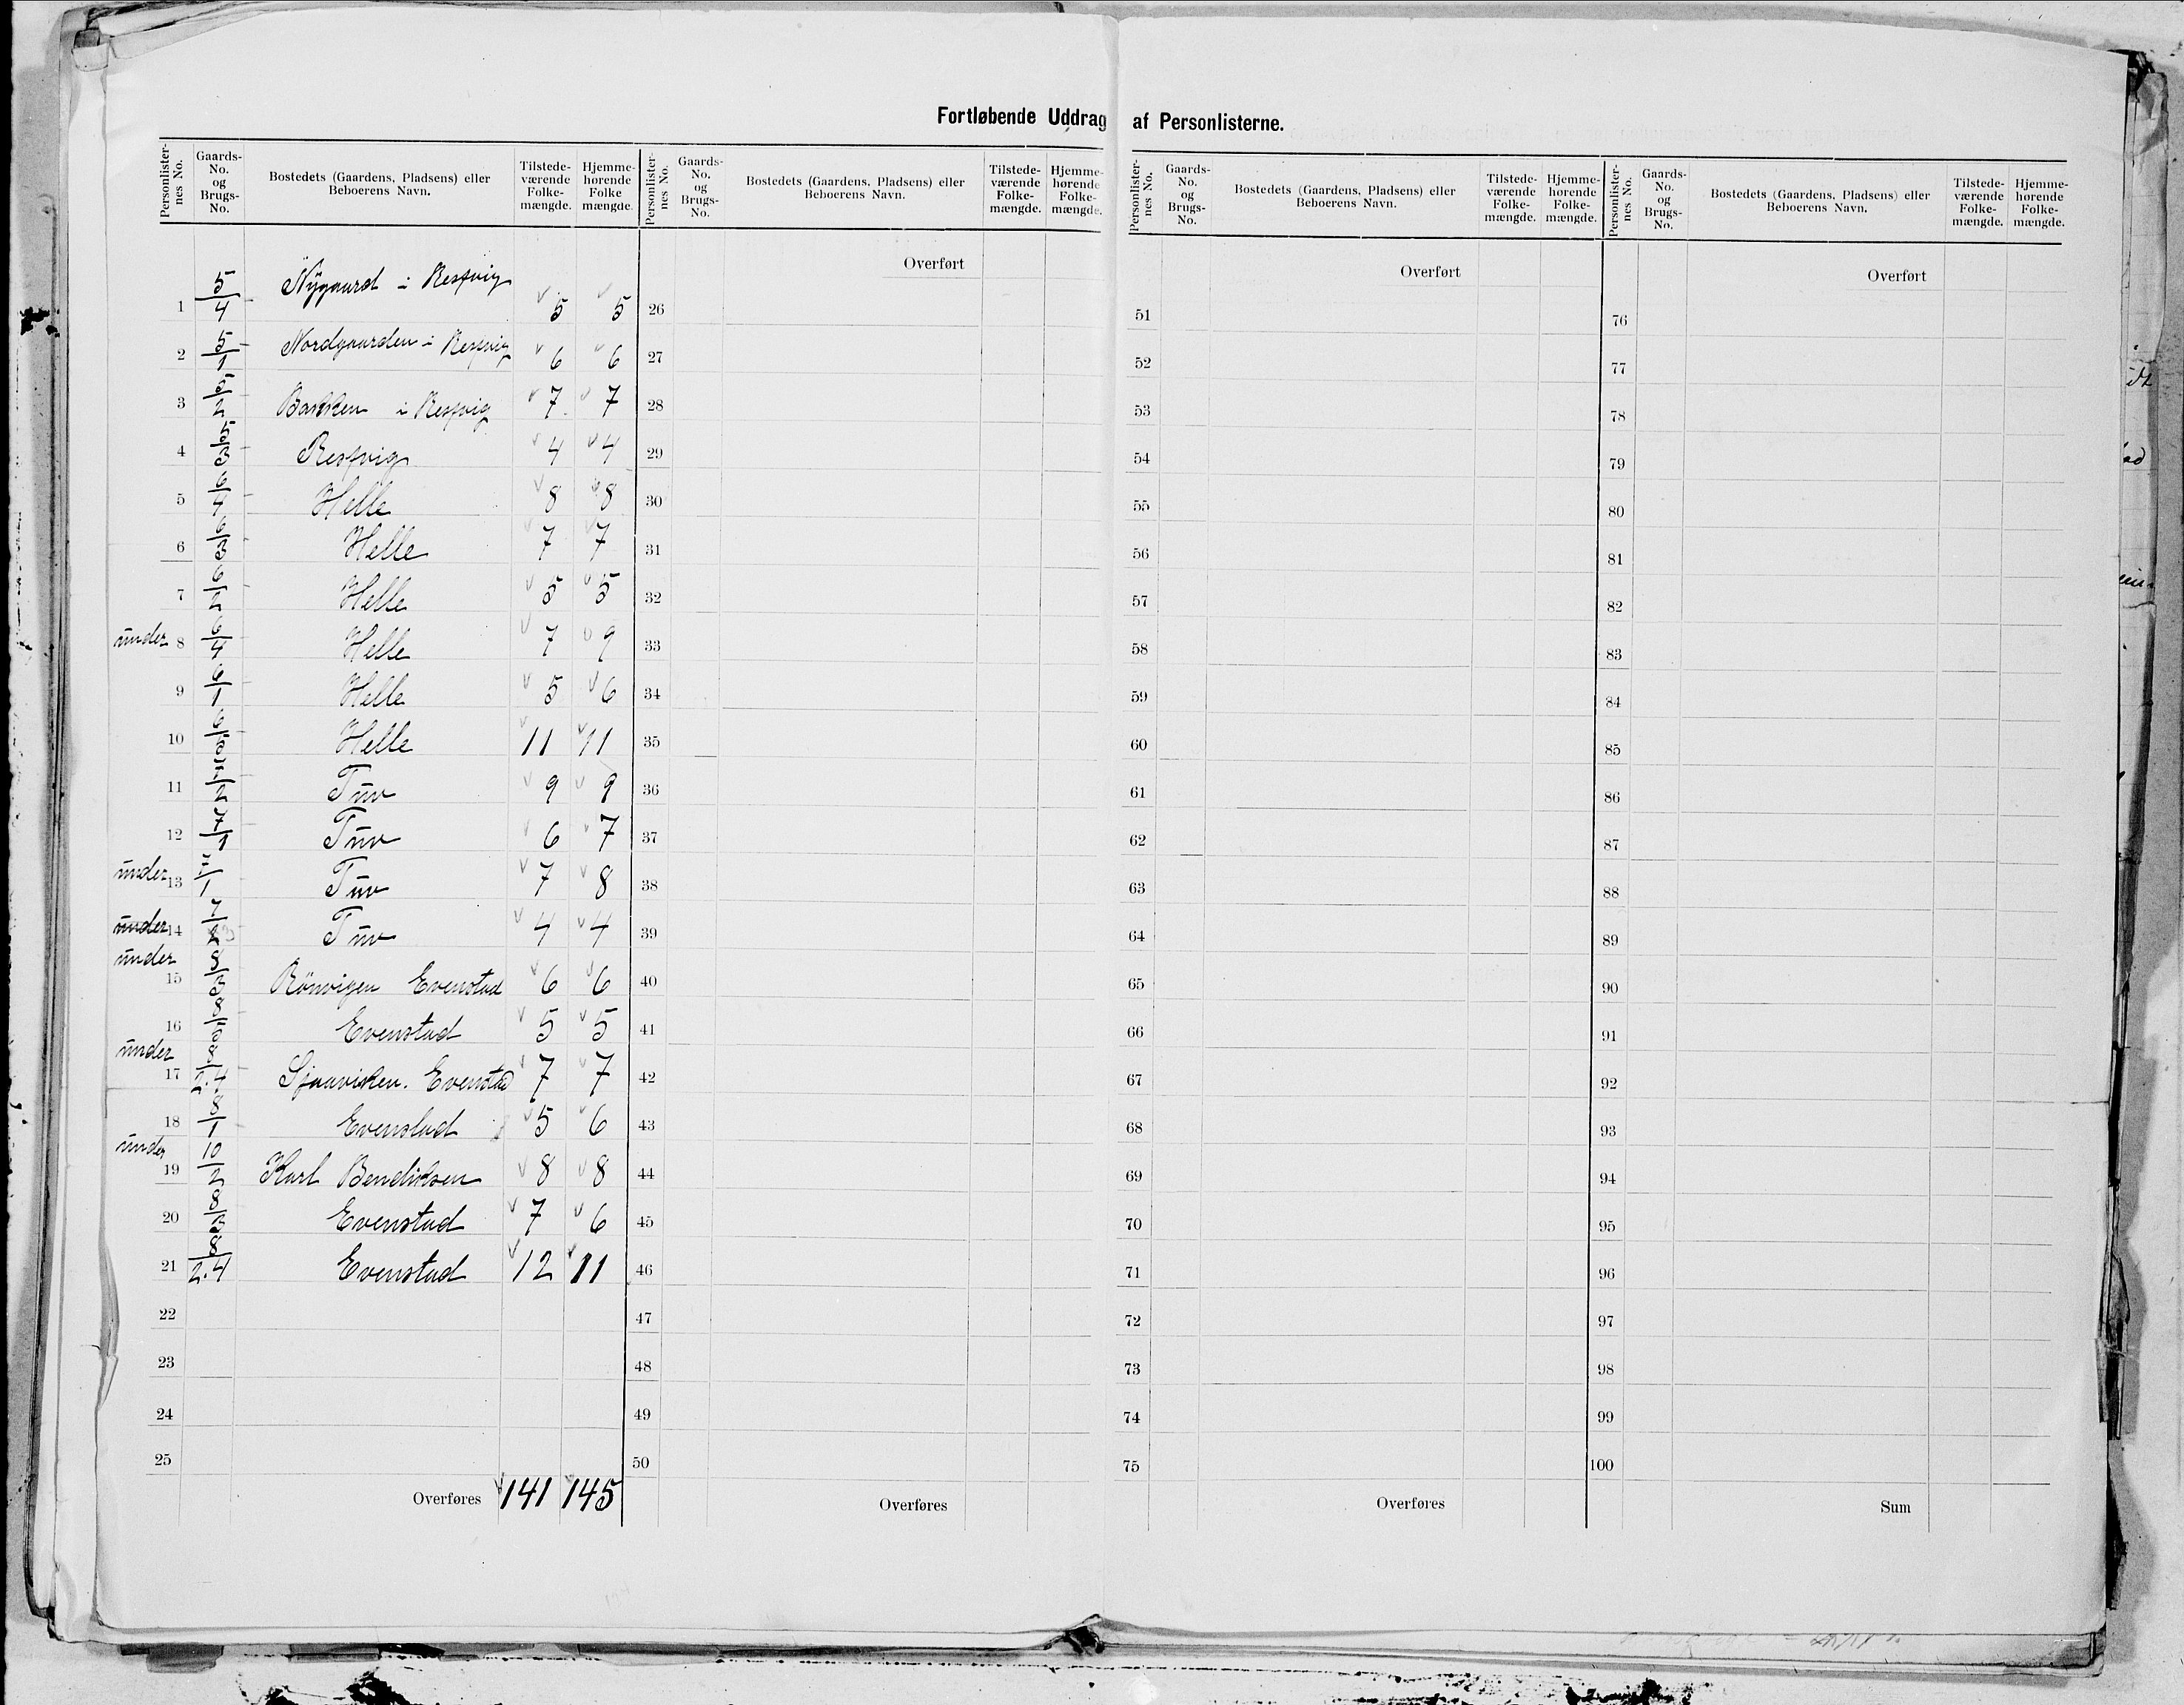 Fortløbende Uddrag af Personlisterne.
Personlisternes No. Gaards-No. og Brugs-No. Bostedets (Gaardens, Pladsens) eller Beboerens Navn. Tilstedeværende Folkemængde. Hjemmehørende Folkemængde.
1 5/4 Nygaard i 5 5
2 5/1 Nordgaarden i 6 6
3 5/2 Bakken i 7 7
4 5/3 4 4
5 6/4 Helle 8 8
6 6/3 Helle 7 7
7 6/2 Helle 5 5
under 8 6/4 Helle 7 9
9 6/1 Helle 5 6
10 6/5 Helle 11 11
11 7/2 Tuv 9 9
12 7/1 Tuv 6 7
under 13 Tuv 7 8
under 14 Tuv 4 4
under
15 8/3 Evenstad 6 6
16 8/5 Evenstad 5 5
under
17 8/2.4 Sjaaviken. Evenstad 7 7
18 8/1 Evenstad 5 6
under
19 10/2 Karl Bendiksen 8 8
20 8/3 Evenstad 7 6
21 8/2.4 Evenstad 12 11
22
23
24
25
Overføres 141 145
Personlisternes No. Gaards-No. og Brugs-No. Bostedets (Gaardens, Pladsens) eller Beboerens Navn. Tilstedeværende Folkemængde. Hjemmehørende Folkemængde.
Overført
26
27
28
29
30
31
32
33
34
35
36
37
38
39
40
41
42
43
44
45
46
47
48
49
50
Overføres
Personlisternes No. Gaards-No. og Brugs-No. Bostedets (Gaardens, Pladsens) eller Beboerens Navn. Tilstedeværende Folkemængde. Hjemmehørende Folkemængde.
Overført
51
52
53
54
55
56
57
58
59
60
61
62
63
64
65
66
67
68
69
70
71
72
73
74
75
Overføres
Personlisternes No. Gaards-No. og Brugs-No. Bostedets (Gaardens, Pladsens) eller Beboerens Navn. Tilstedeværende Folkemængde. Hjemmehørende Folkemængde.
Overført
76
77
78
79
80
81
82
83
84
85
86
87
88
89
90
91
92
93
94
95
96
97
98
99
100
Sum